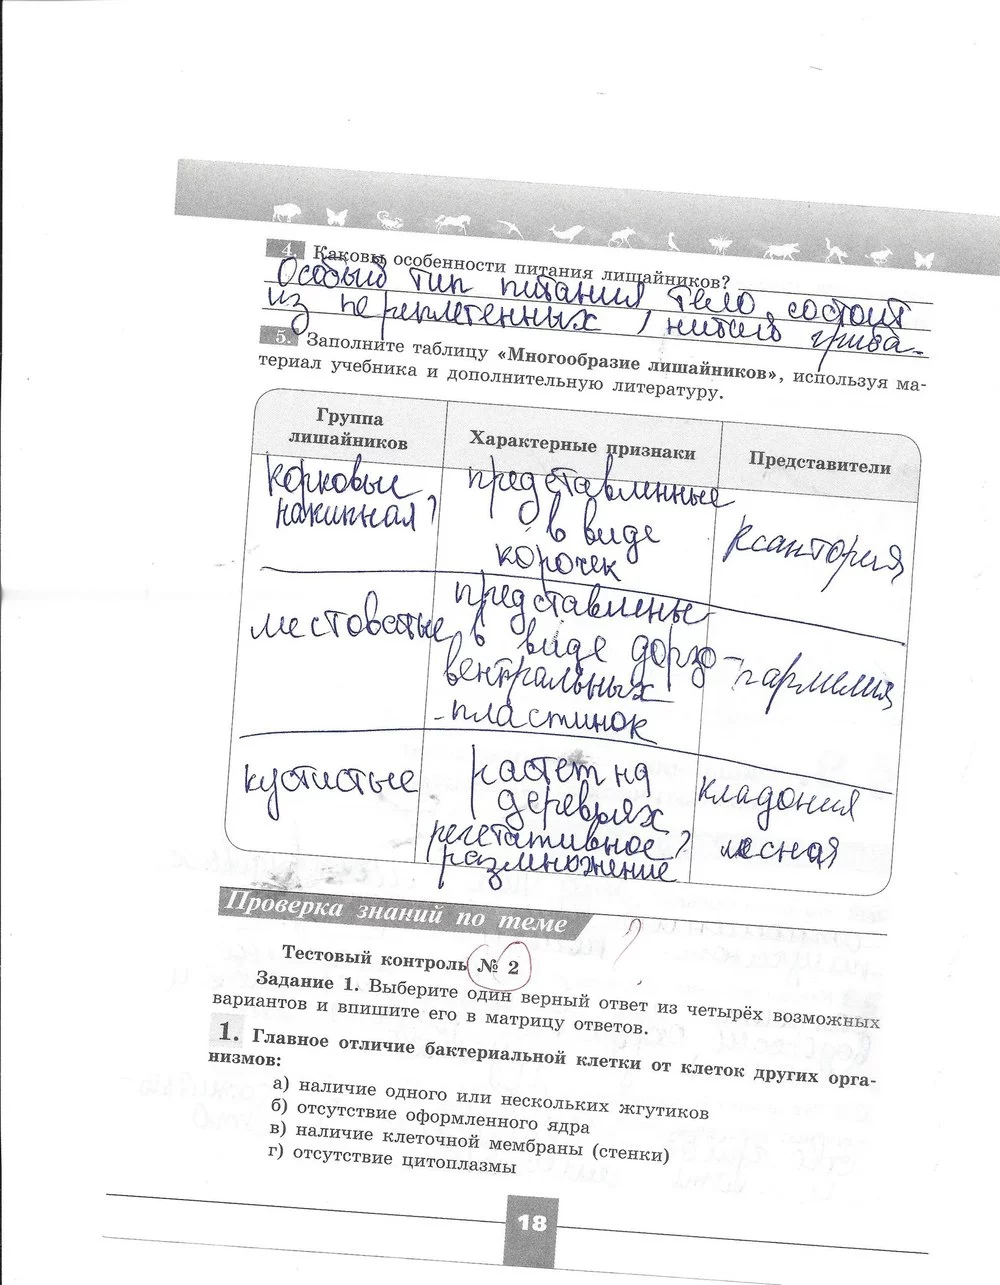 4. Каковы особенности питания лишайников?
Особый тип питания, тело состоит
из переплетенных нитей гриба.
5. Заполните таблицу «Многообразие лишайников», используя ма-
териал учебника и дополнительную литературу.
Группа
лишайников
Характерные признаки
Представители
корковые
накипная)
представленные
в виде
корочек
ксантория
листоватые
представлены
в виде дорзо-
вентральных
пластинок
пармелия
кустистые
растет на
деревьях
размножение
кладония
лесная
Проверка знаний по теме
Тестовый контроль № 2
Задание 1. Выберите один верный ответ из четырёх возможных
вариантов и впишите его в матрицу ответов.
1. Главное отличие бактериальной клетки от клеток других орга-
низмов:
а) наличие одного или нескольких жгутиков
б) отсутствие оформленного ядра
в) наличие клеточной мембраны (стенки)
г) отсутствие цитоплазмы
18